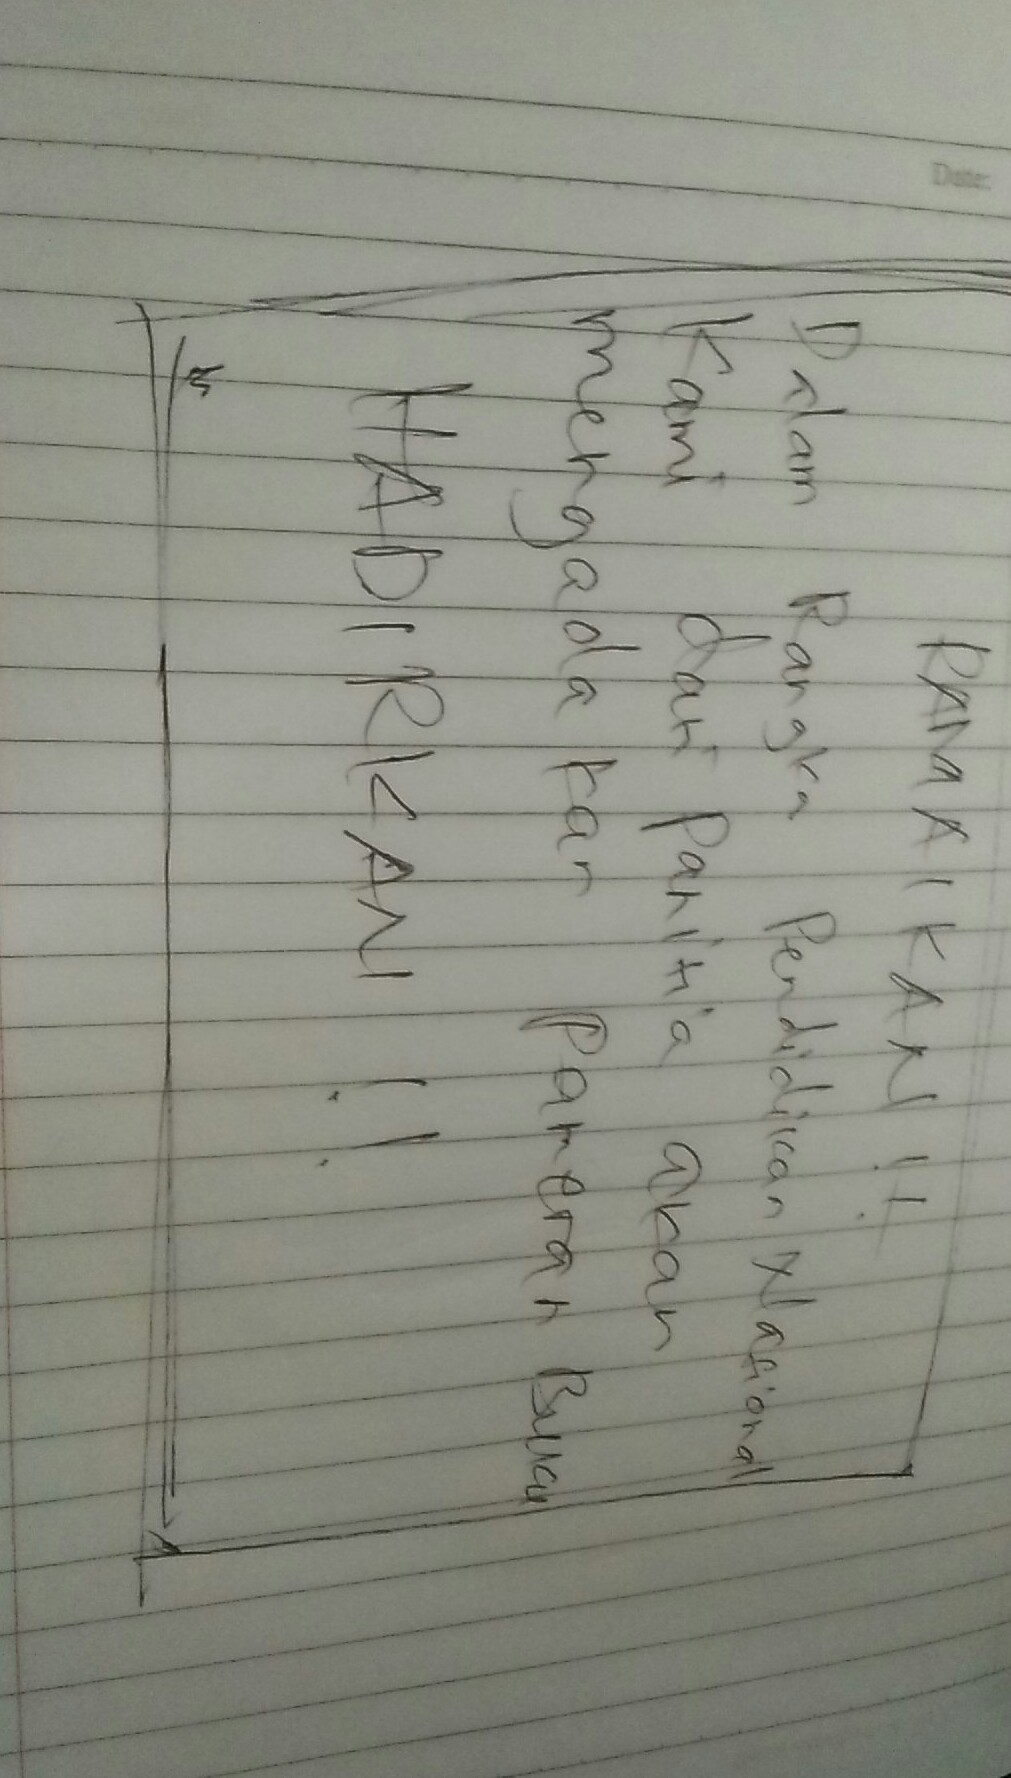 RAMAIKAN !!
Dalam Rangka Pendidikan Nasional
Kami dari Panitia akan
mengadakan Pameran Buku
HADIRKAN !!
Date: